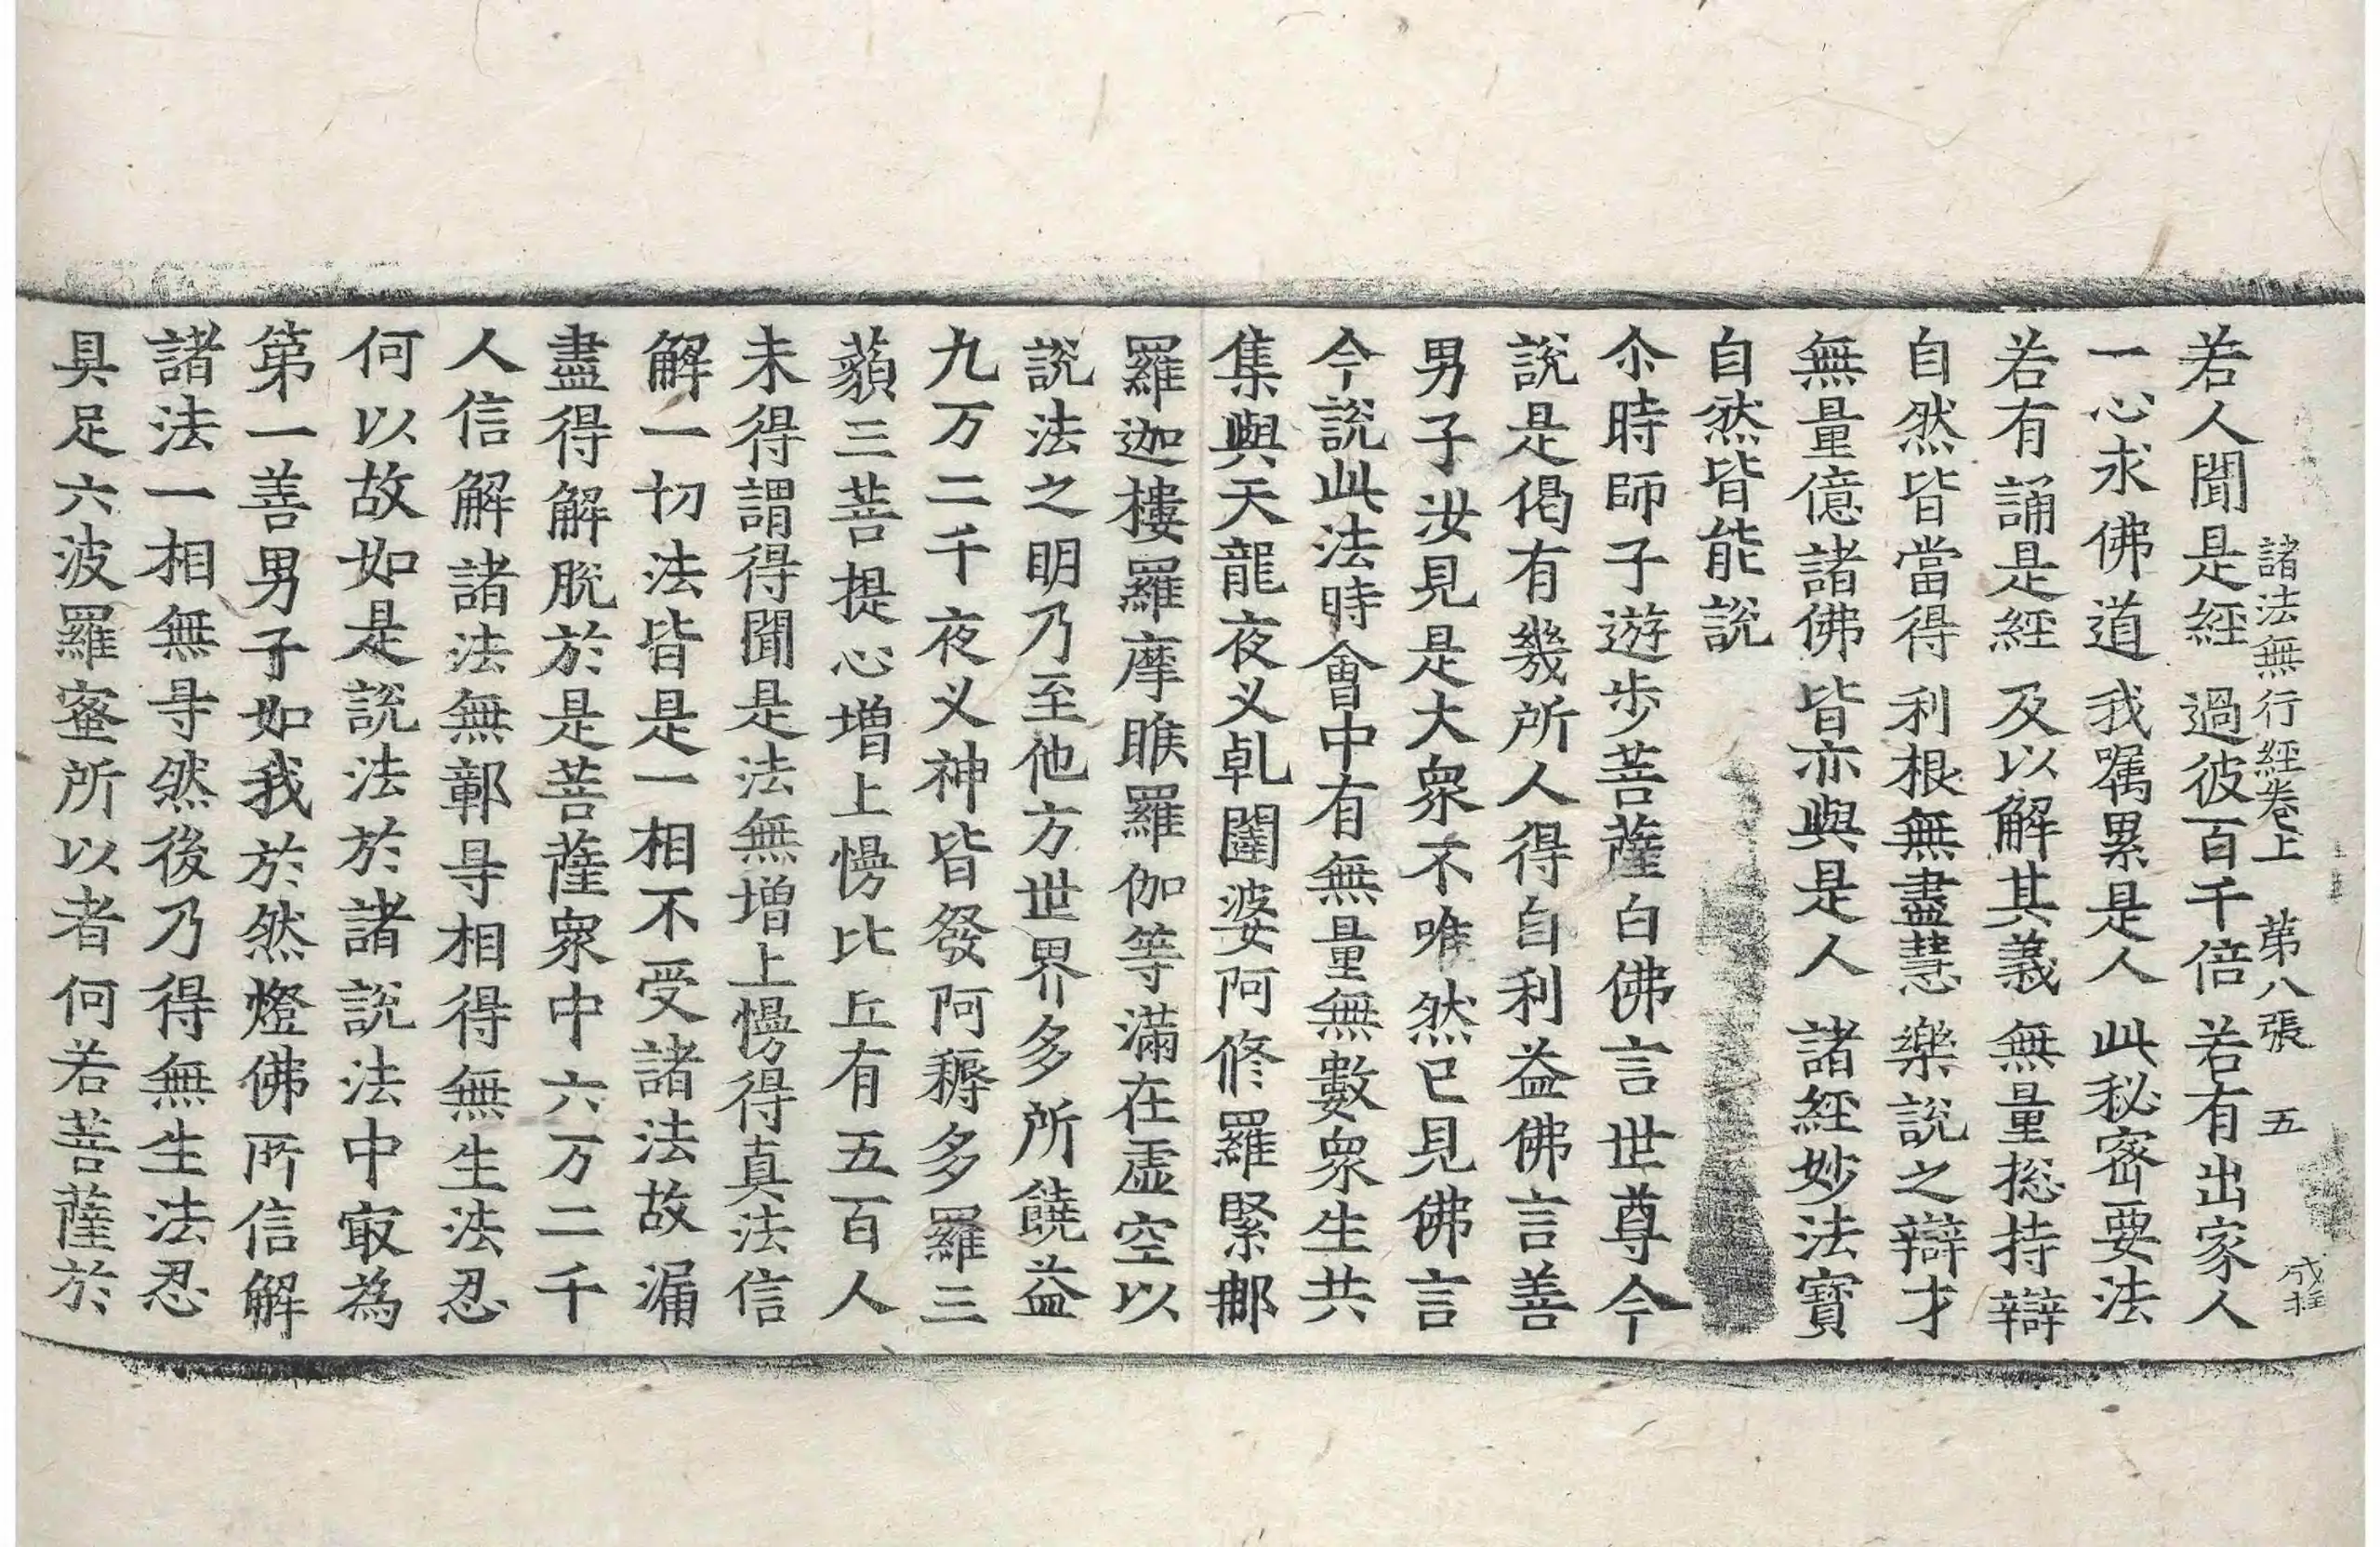 諸法無行經卷上 第八張 五
若人聞是經 過彼百千倍 若有出家人
一心求佛道 我嘱累是人 此秘密要法
若有誦是經 及以解其義 無量捴持辯
自然皆當得 利根無盡慧 樂說之辯才
無量億諸佛 皆亦與是人 諸經妙法寳
自然皆能說
尒時師子遊步菩薩白佛言世尊今
說是偈有幾所人得自利益佛言善
男子汝見是大衆不唯然已見佛言
今說此法時會中有無量無數衆生共
集與天龍夜义乹闥婆阿修羅緊郍
羅迦樓羅摩睺羅伽等滿在虛空以
說法之明乃至他方世界多所饒益
九万二千夜义神皆發阿耨多羅三
藐三菩提心增上慢比丘有五百人
未得謂得聞是法無增上慢得真法信
解一切法皆是一相不受諸法故漏
盡得解脫於是菩薩衆中六万二千
人信解諸法無鄣㝵相得無生法忍
何以故如是說法於諸說法中㝡為
第一善男子如我於然燈佛所信解
諸法一相無㝵然後乃得無生法忍
具足六波羅蜜所以者何若菩薩於